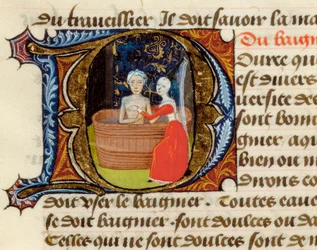 du traueillier Je doit sauoir la ma
Du baign
Duree qu
est diuers
uersite des
sont bonn
gnier. aqu
bien ou m
dirons co
doit vser le baignier. Toutes eaue
se doit baignier. sont doulces ou da
Celles qui ne sont doulces sont de m